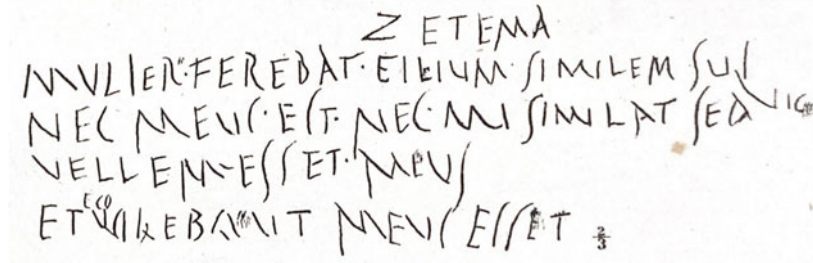 ZETEMA
MVLIER·FEREBAT·FILIVM·SIMILEM SVI
NEC MEVS·EST·NEC·MI SIMILAT SED
VELLEM·ESSET·MEVS
ET EGO VOLEBAM VT MEVS ESSET